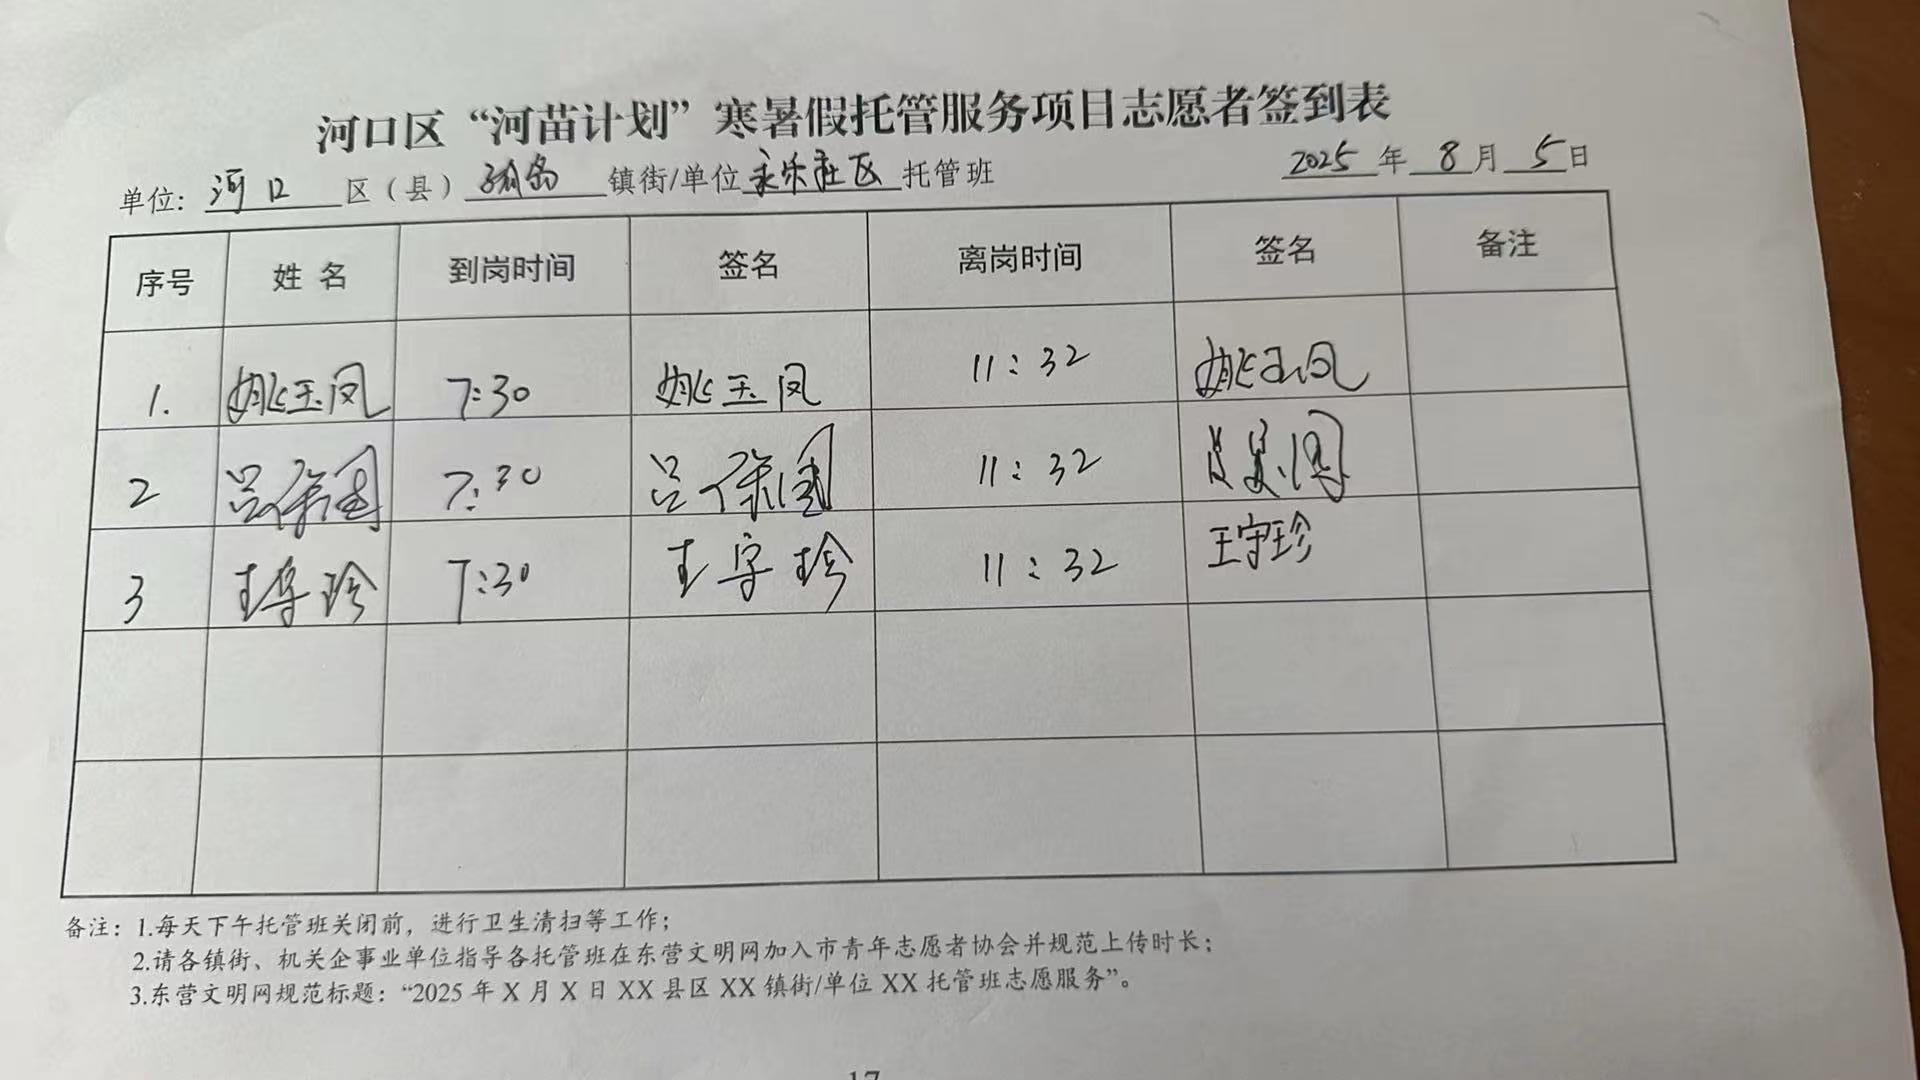 河口区“河苗计划”寒暑假托管服务项目志愿者签到表
单位：河口区（县）孤岛镇街/单位永乐社区托管班 2025年8月5日
序号 姓名 到岗时间 签名 离岗时间 签名 备注
1. 姚玉凤 7:30 姚玉凤 11:32 姚玉凤
2 吕保国 7:30 吕保国 11:32
3 王守珍 7:30 王守珍 11:32 王守珍
备注：1.每天下午托管班关闭前，进行卫生清扫等工作；
2.请各镇街、机关企事业单位指导各托管班在东营文明网加入市青年志愿者协会并规范上传时长；
3.东营文明网规范标题：“2025 年 X 月 X 日 XX 县区 XX 镇街/单位 XX 托管班志愿服务”。
17